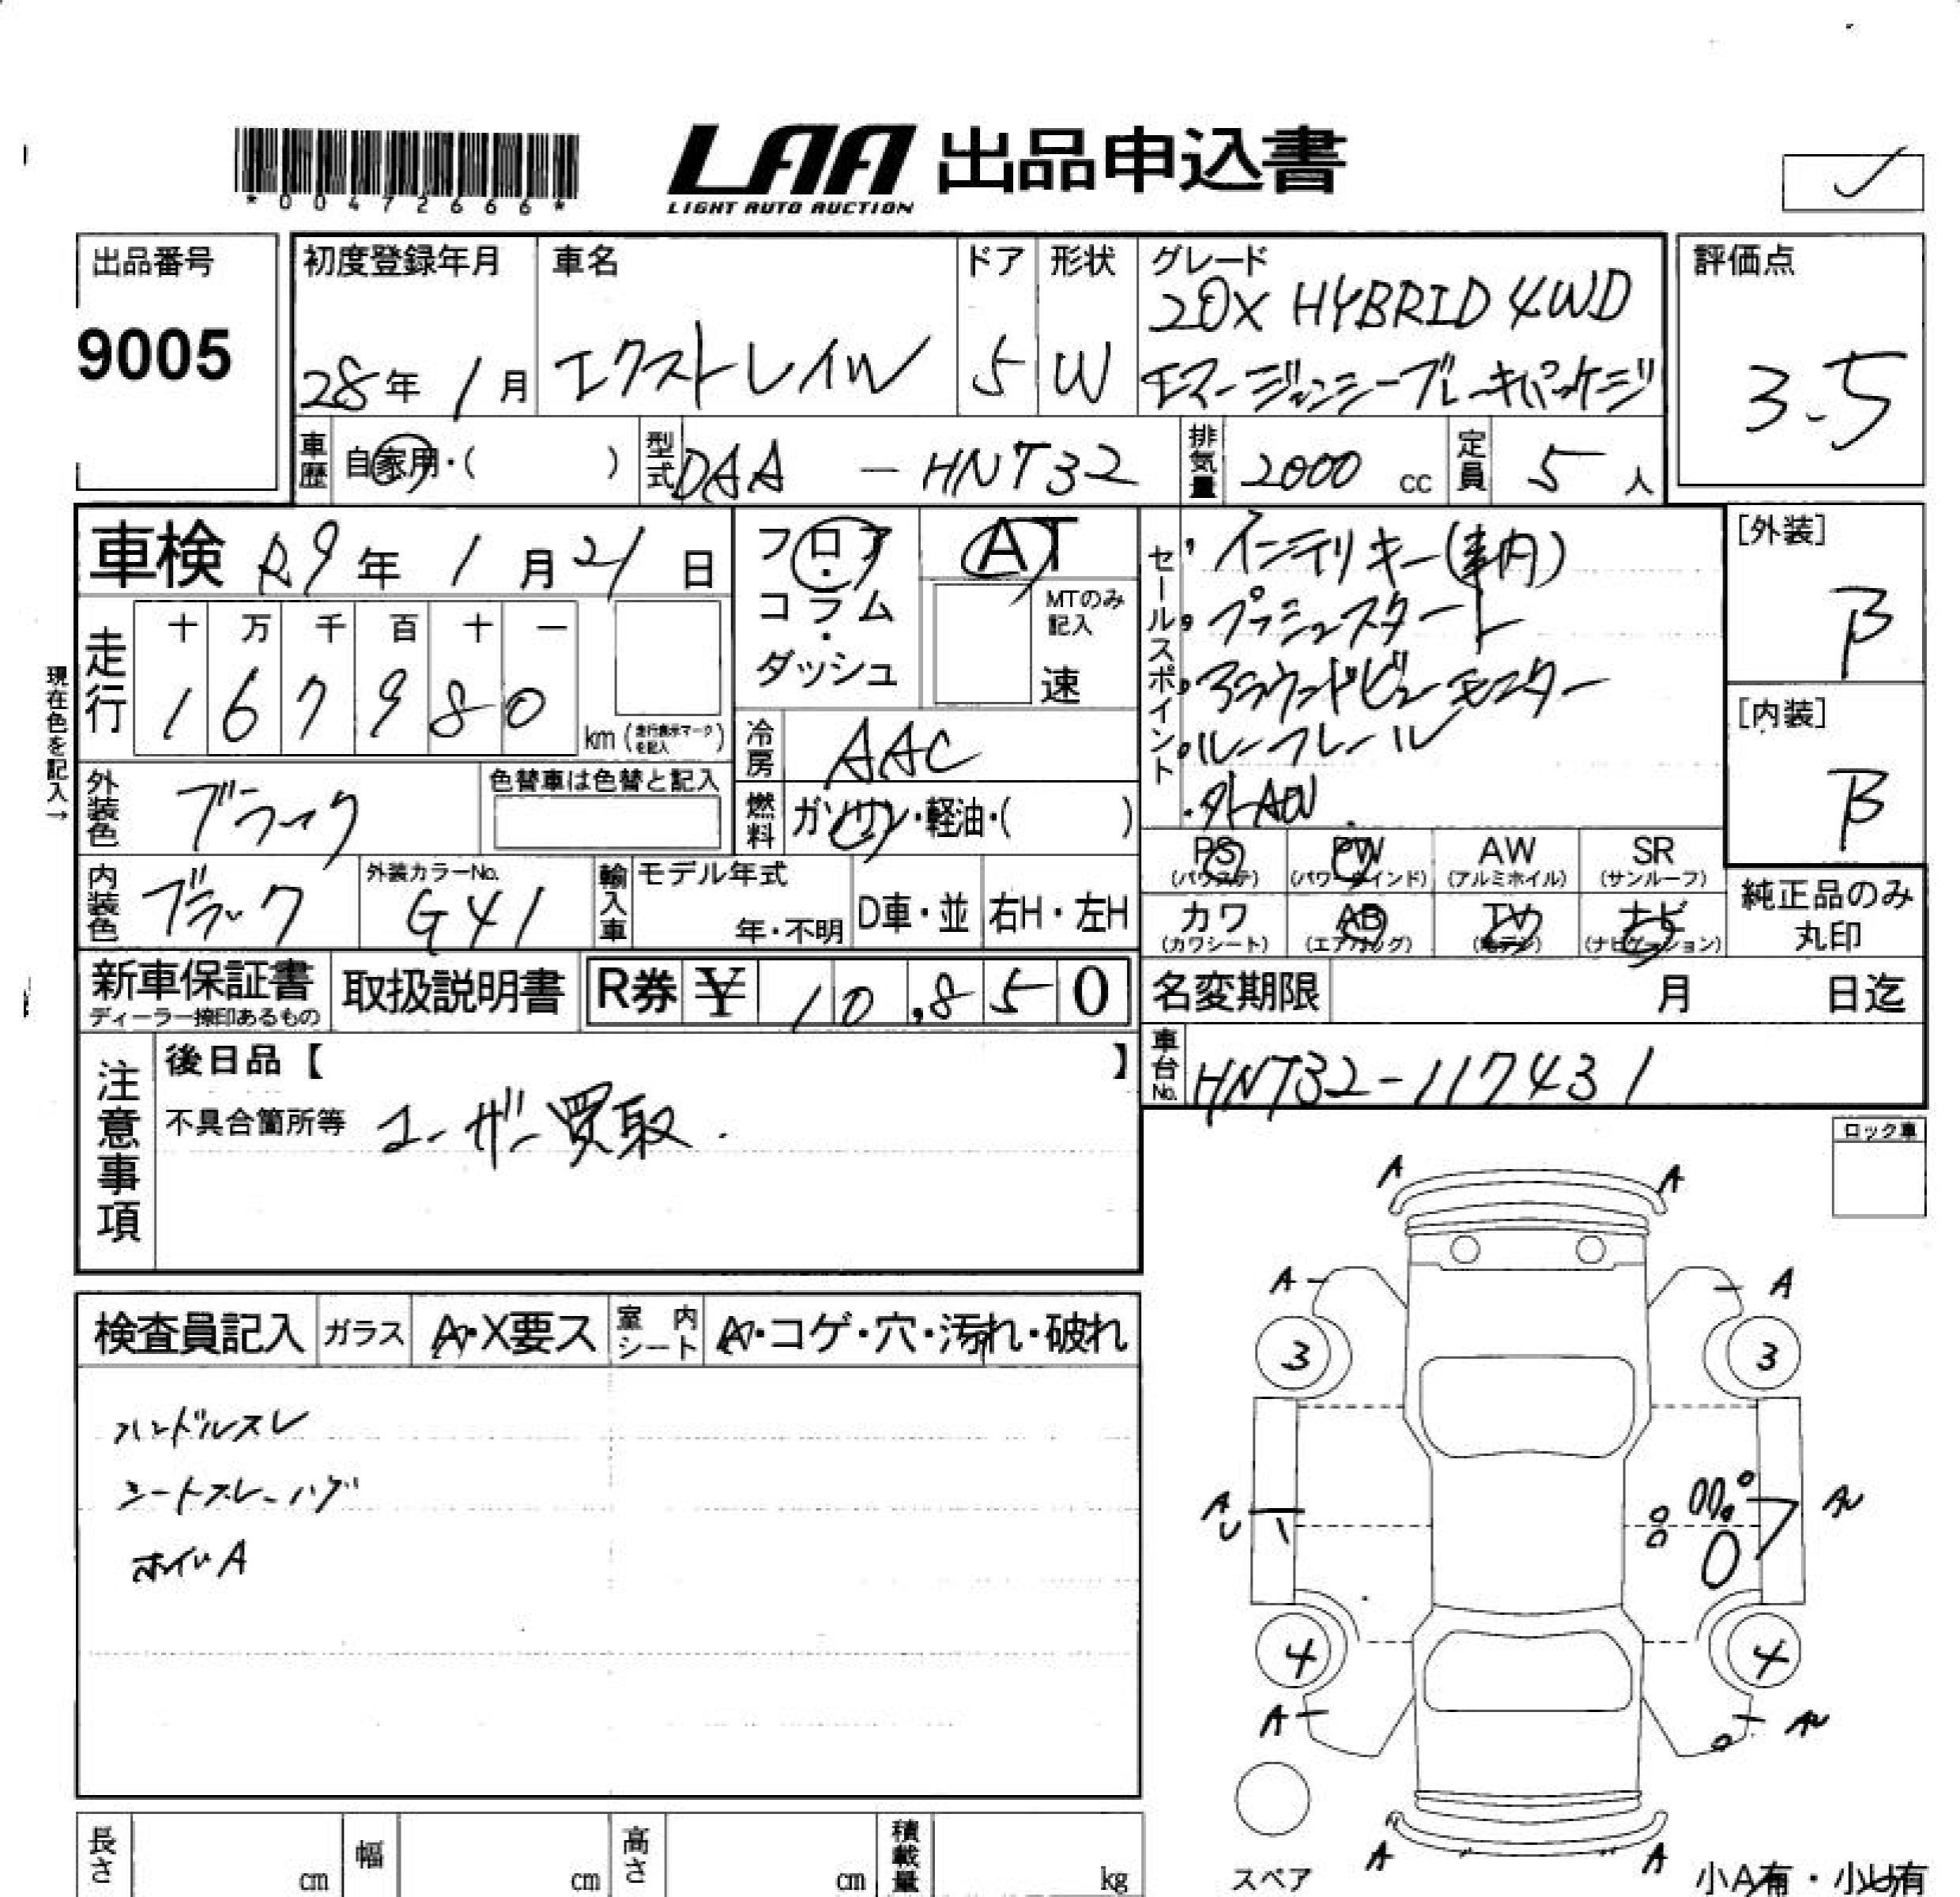 *00472666*
LAA 出品申込書
LIGHT AUTO AUCTION
出品番号
9005
初度登録年月
28年 1月
車名
エクストレイル
ドア
5
形状
W
グレード
20X HYBRID 4WD
エマージェンシーブレーキパッケージ
評価点
3.5
車歴 自家用・( )
型式 DAA - HNT32
排気量 2000 cc
定員 5 人
車検 R9年 1月 21日
フロア・コラム・ダッシュ
AT
MTのみ記入
速
セールスポイント
・インテリキー(車内)
・プッシュスタート
・アラウンドビューモニター
・ルーフレール
・外AW
[外装]
B
[内装]
B
現在色を記入→
走行
十 万 千 百 十 一
1 6 7 9 8 0
km (走行表示マークを記入)
冷房 AAC
燃料 ガソリン・軽油・( )
外装色 ブラック
色替車は色替と記入
内装色 ブラック
外装カラーNo.
G41
輸入車
モデル年式
年・不明
D車・並
右H・左H
PS
(パワステ)
PW
(パワーウインド)
AW
(アルミホイル)
SR
(サンルーフ)
カワ
(カワシート)
AB
(エアバッグ)
TV
(地デジ)
ナビ
(ナビゲーション)
純正品のみ
丸印
新車保証書
ディーラー捺印あるもの
取扱説明書
R券 ¥ 10,850
名変期限 月 日迄
車台No. HNT32-117431
注意事項
後日品【 】
不具合箇所等 ユーザー買取.
ロック車
検査員記入
ガラス A・X要ス
室内シート A・コゲ・穴・汚れ・破れ
ハンドルスレ
シートスレ ハゲ
ホイルA
A A
A A
3 3
A
U
AU
4 4
A AU
A A
スペア
小A有・小U有
長さ cm
幅 cm
高さ cm
積載量 kg